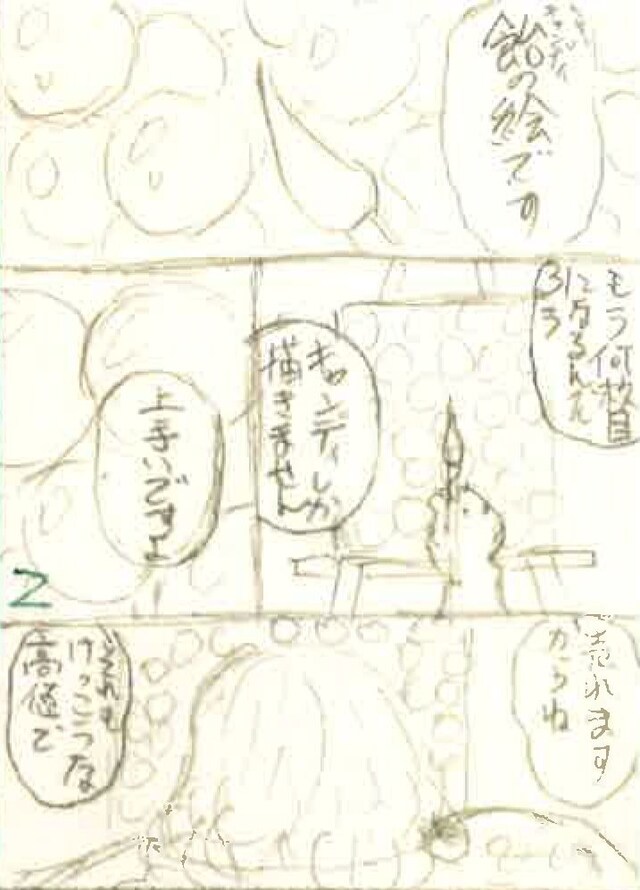 キャンディ
飴の絵です
もう何枚目
になるんだ
ろう
キャンディしか
描きません
上手いですよ
2
で売れます
からね
どれも
けっこうな
高値で